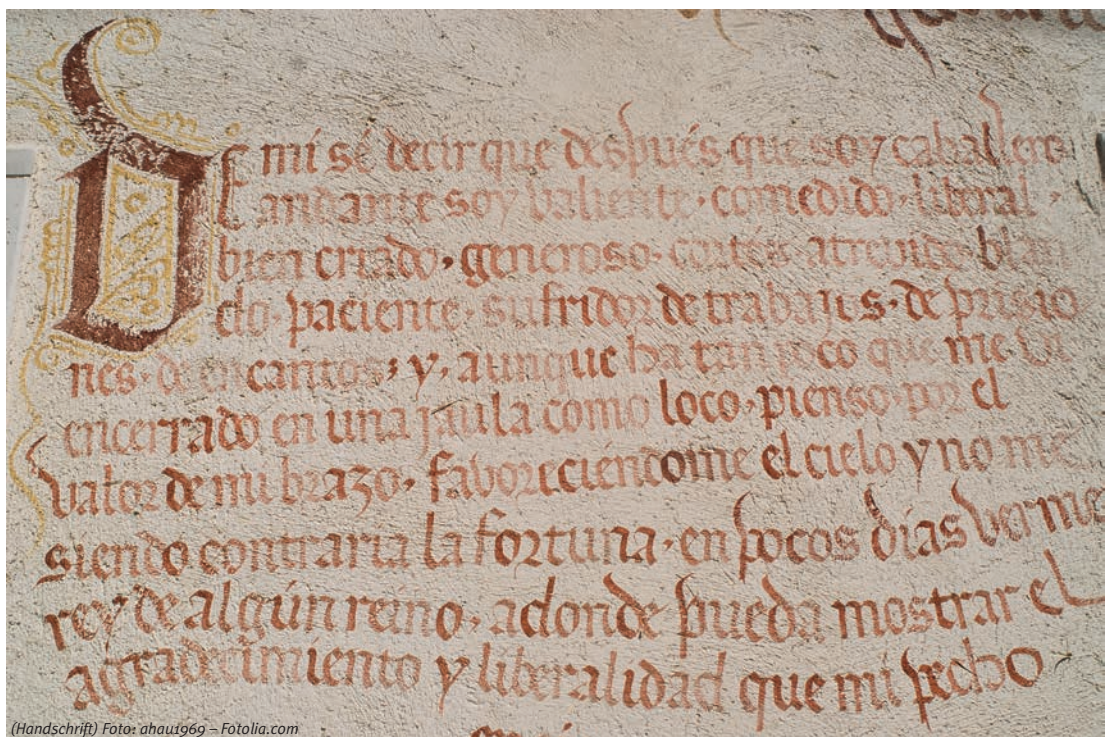 De mí sé decir que después que soy caballero
andante soy valiente · comedido · liberal ·
bien criado · generoso · cortés · atrevido · blan
do · paciente · sufridor de trabajos · de prisio
nes · de encantos; y, aunque ha tan poco que me vi
encerrado en una jaula como loco · pienso · por el
valor de mi brazo · favoreciéndome el cielo y no me
siendo contraria la fortuna · en pocos días verme
rey de algún reino · adonde pueda mostrar el
agradecimiento y liberalidad que mi pecho
(Handschrift) Foto: ahau1969 – Fotolia.com